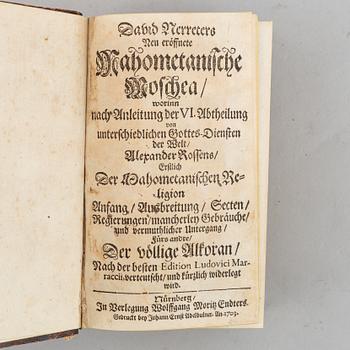 David Nerreters
Neu eröffnete
Mahometanische
Moschea/
worinn
nach Anleitung der VI. Abtheilung
von
unterschiedlichen Gottes-Diensten
der Welt/
Alexander Rossens/
Erstlich
Der Mahometanischen Re-
ligion
Anfang/ Ausbreitung/ Secten/
Regierungen/ mancherley Gebräuche/
und vermuthlicher Untergang/
Fürs andre/
Der völlige Alkoran/
Nach der besten Edition Ludovici Mar-
raccii, verteutscht/ und kürzlich widerlegt
wird.
Nürnberg/
In Verlegung Wolffgang Moritz Endters.
Gedruckt bey Johann Ernst Adelbulner. An. 1703.